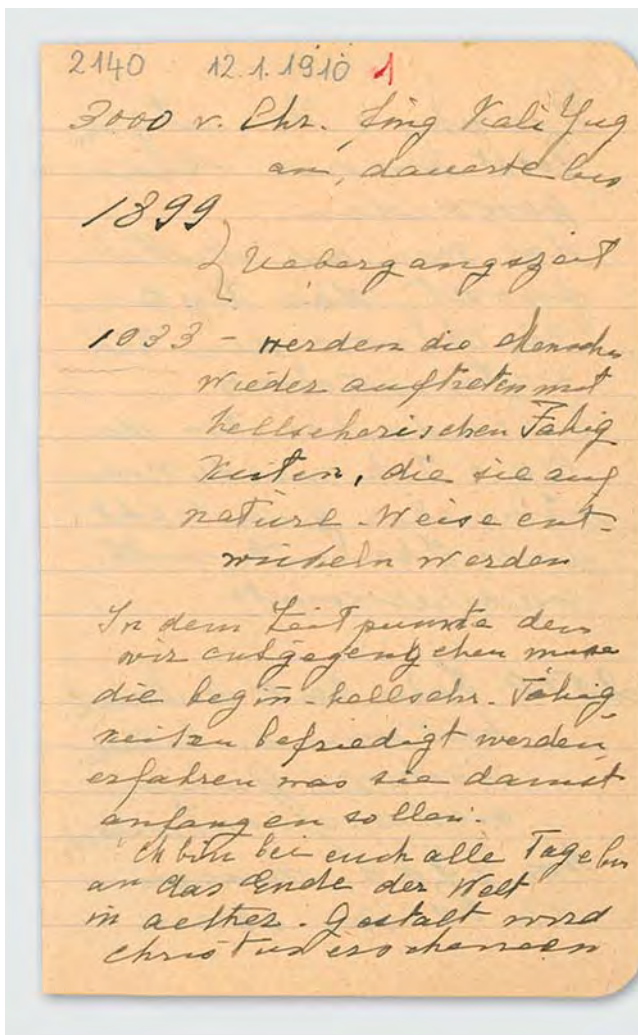 2140 12.1.1910 1
3000 v. Chr. fing Kali Yug
an, dauerte bis
1899
Uebergangszeit
1933 - werden die Menschen
wieder auftreten mit
hellseherischen Fähig
keiten, die sie auf
natürl. Weise ent-
wickeln werden
In dem Zeitpunkte dem
wir entgegengehen muss
die begin. hellsehr. Fähig
keiten befriedigt werden,
erfahren was sie damit
anfangen sollen.
Ich bin bei euch alle Tage bis
an das Ende der Welt
in aether. Gestalt wird
Christus erscheinen